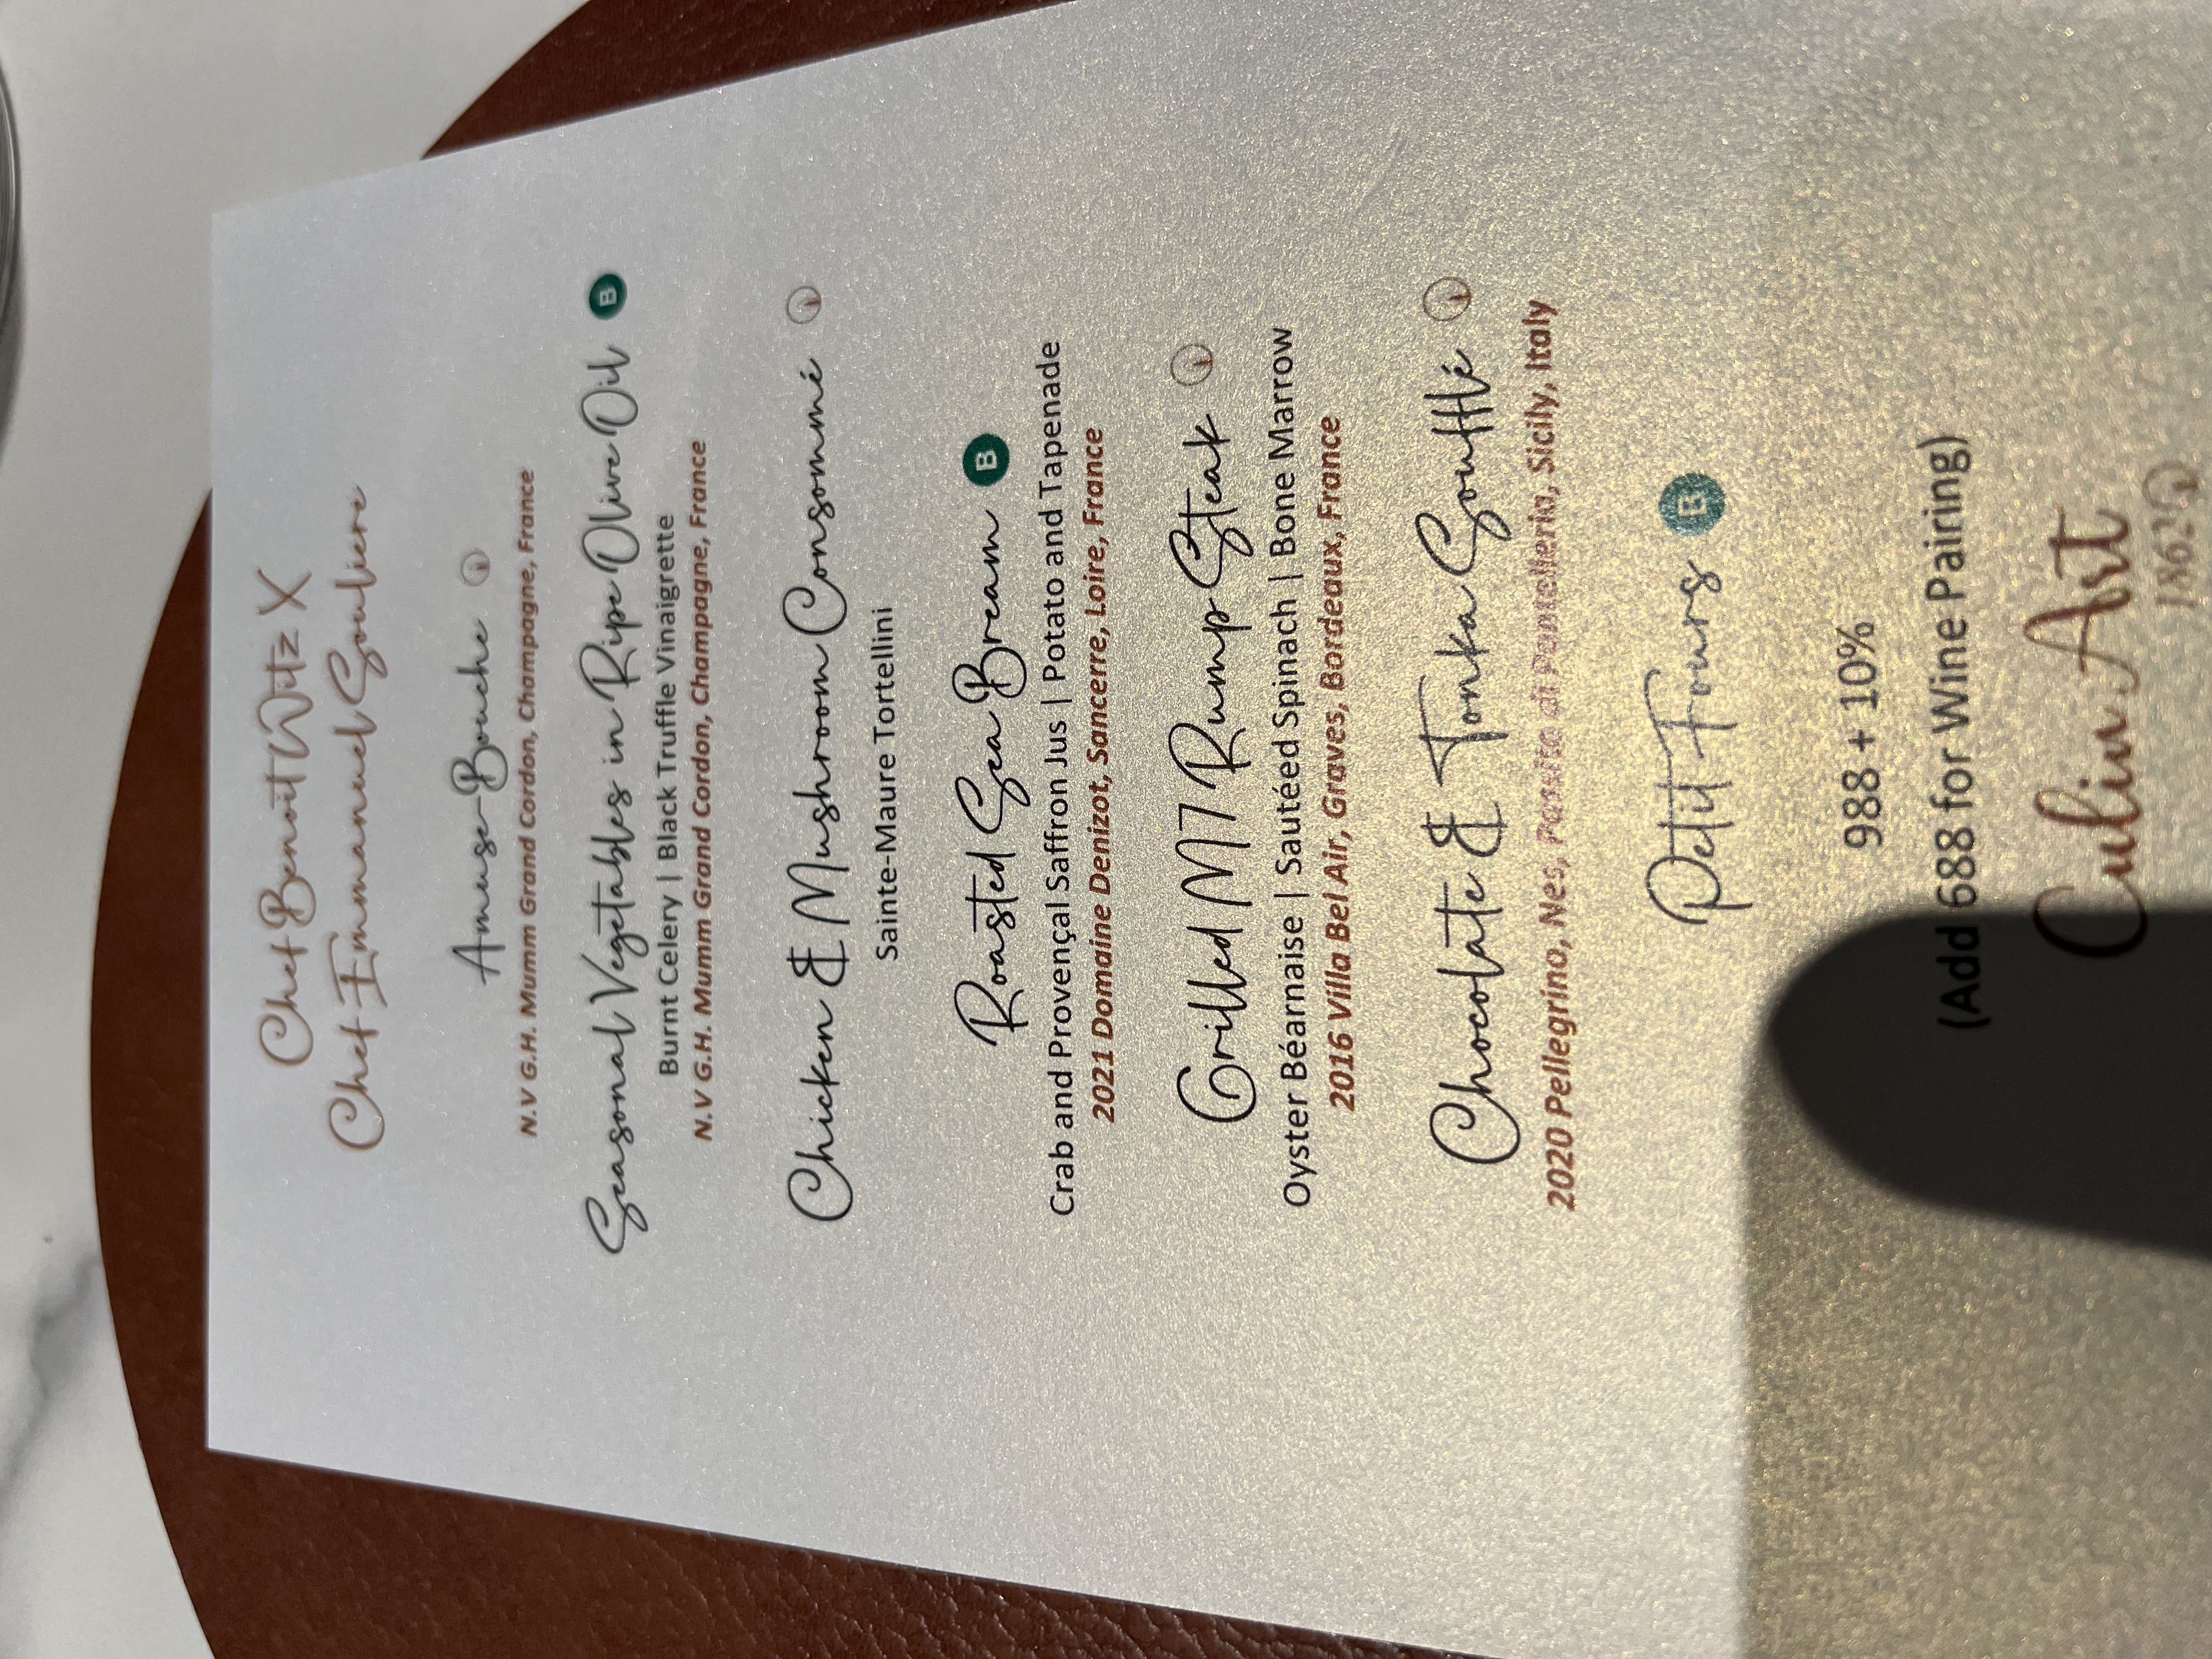 Chef Benoit Witz X
Chef Emmanuel Souliere
Amuse-Bouche
N.V G.H. Mumm Grand Cordon, Champagne, France
Seasonal Vegetables in Ripe Olive Oil B
Burnt Celery | Black Truffle Vinaigrette
N.V G.H. Mumm Grand Cordon, Champagne, France
Chicken & Mushroom Consommé
Sainte-Maure Tortellini
Roasted Sea Bream B
Crab and Provençal Saffron Jus | Potato and Tapenade
2021 Domaine Denizot, Sancerre, Loire, France
Grilled M7 Rump Steak
Oyster Béarnaise | Sautéed Spinach | Bone Marrow
2016 Villa Bel Air, Graves, Bordeaux, France
Chocolate & Tonka Soufflé
2020 Pellegrino, Nes, Passito di Pantelleria, Sicily, Italy
Petit Fours B
988 + 10%
(Add 688 for Wine Pairing)
Culin Art
1862